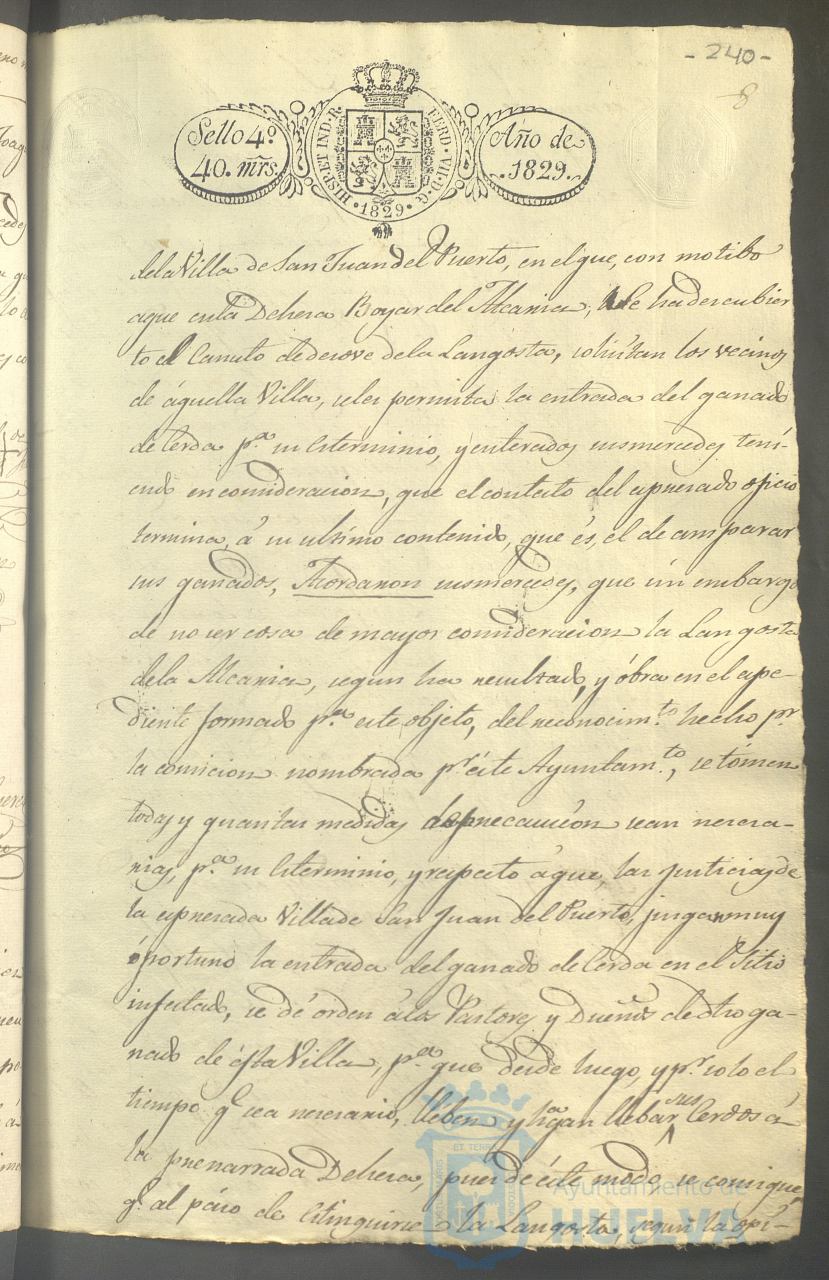 - 240 -
8
Sello 4º
40. mrs.
HISP. ET IND. R.
FERD. VII. D. G.
• 1829 •
Año de
.1829.
dela Villa de San Juan del Puerto, en el que, con motibo
aque enla Dehesa Boyar del Alcaria, se ha descubier
to el Canuto de desove dela Langosta, solicitan los vecinos
de áquella Villa, seles permita la entrada del ganado
de Cerda pª su esterminio, y enterados susmercedes teni-
endo en consideracion, que el contesto del espresado oficio
termina, á su ultimo contenido, que és, el de amparar
sus ganados, Acordaron susmercedes, que sin embargo
de no ser cosa de mayor consideracion la Langosta
dela Alcaria, segun ha resultado, y óbra en el espe-
diente formado pª este objeto, del reconocimto. hecho pr.
la comicion nombrada pr éste Ayuntamto., se tómen
todas y quantas medidas de precaución sean nesesa-
rias, pª su esterminio, y respecto á que, las justicias de
la espresada Villa de San Juan del Puerto, juzgan muy
óportuno la entrada del ganado de Cerda en el Sitio
infestado, se dé órden álos Pastores y Dueños de dho ga-
nado de ésta Villa, pª que desde luego, y pr. solo el
tiempo qe. sea nesesario, lleben y hagan llebar sus Cerdos á
la prenarrada Dehesa, pues de éste modo, se consigue
qe. al páso de estinguirse la Langosta, segun la opi-
Ayuntamiento de
HUELVA